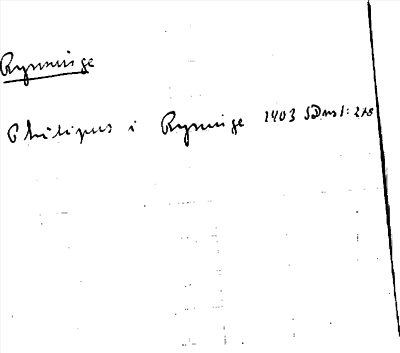 Rynninge
Philipus i Rynninge 1403 SDns 1: 278